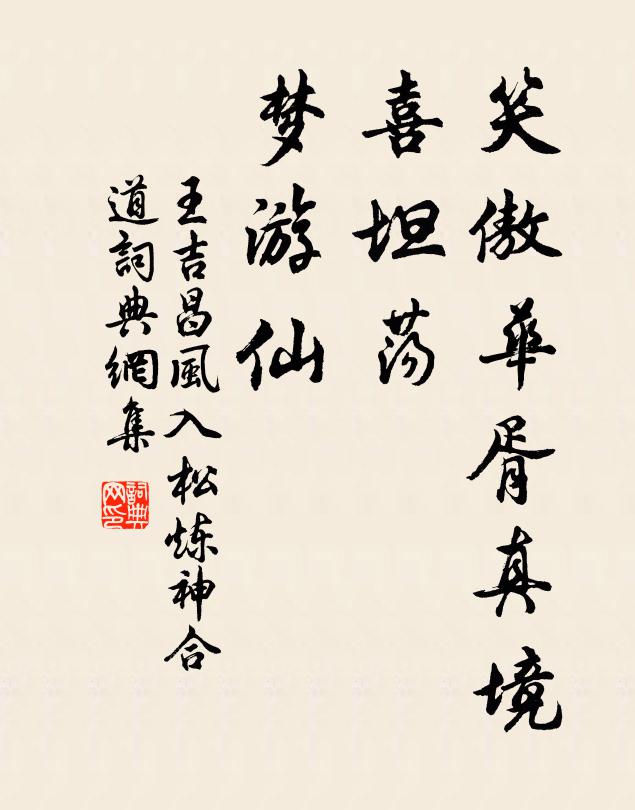 笑傲華胥真境
喜坦荡
梦游仙
王吉昌風入松炼神合
道詞典網集
詞典網印